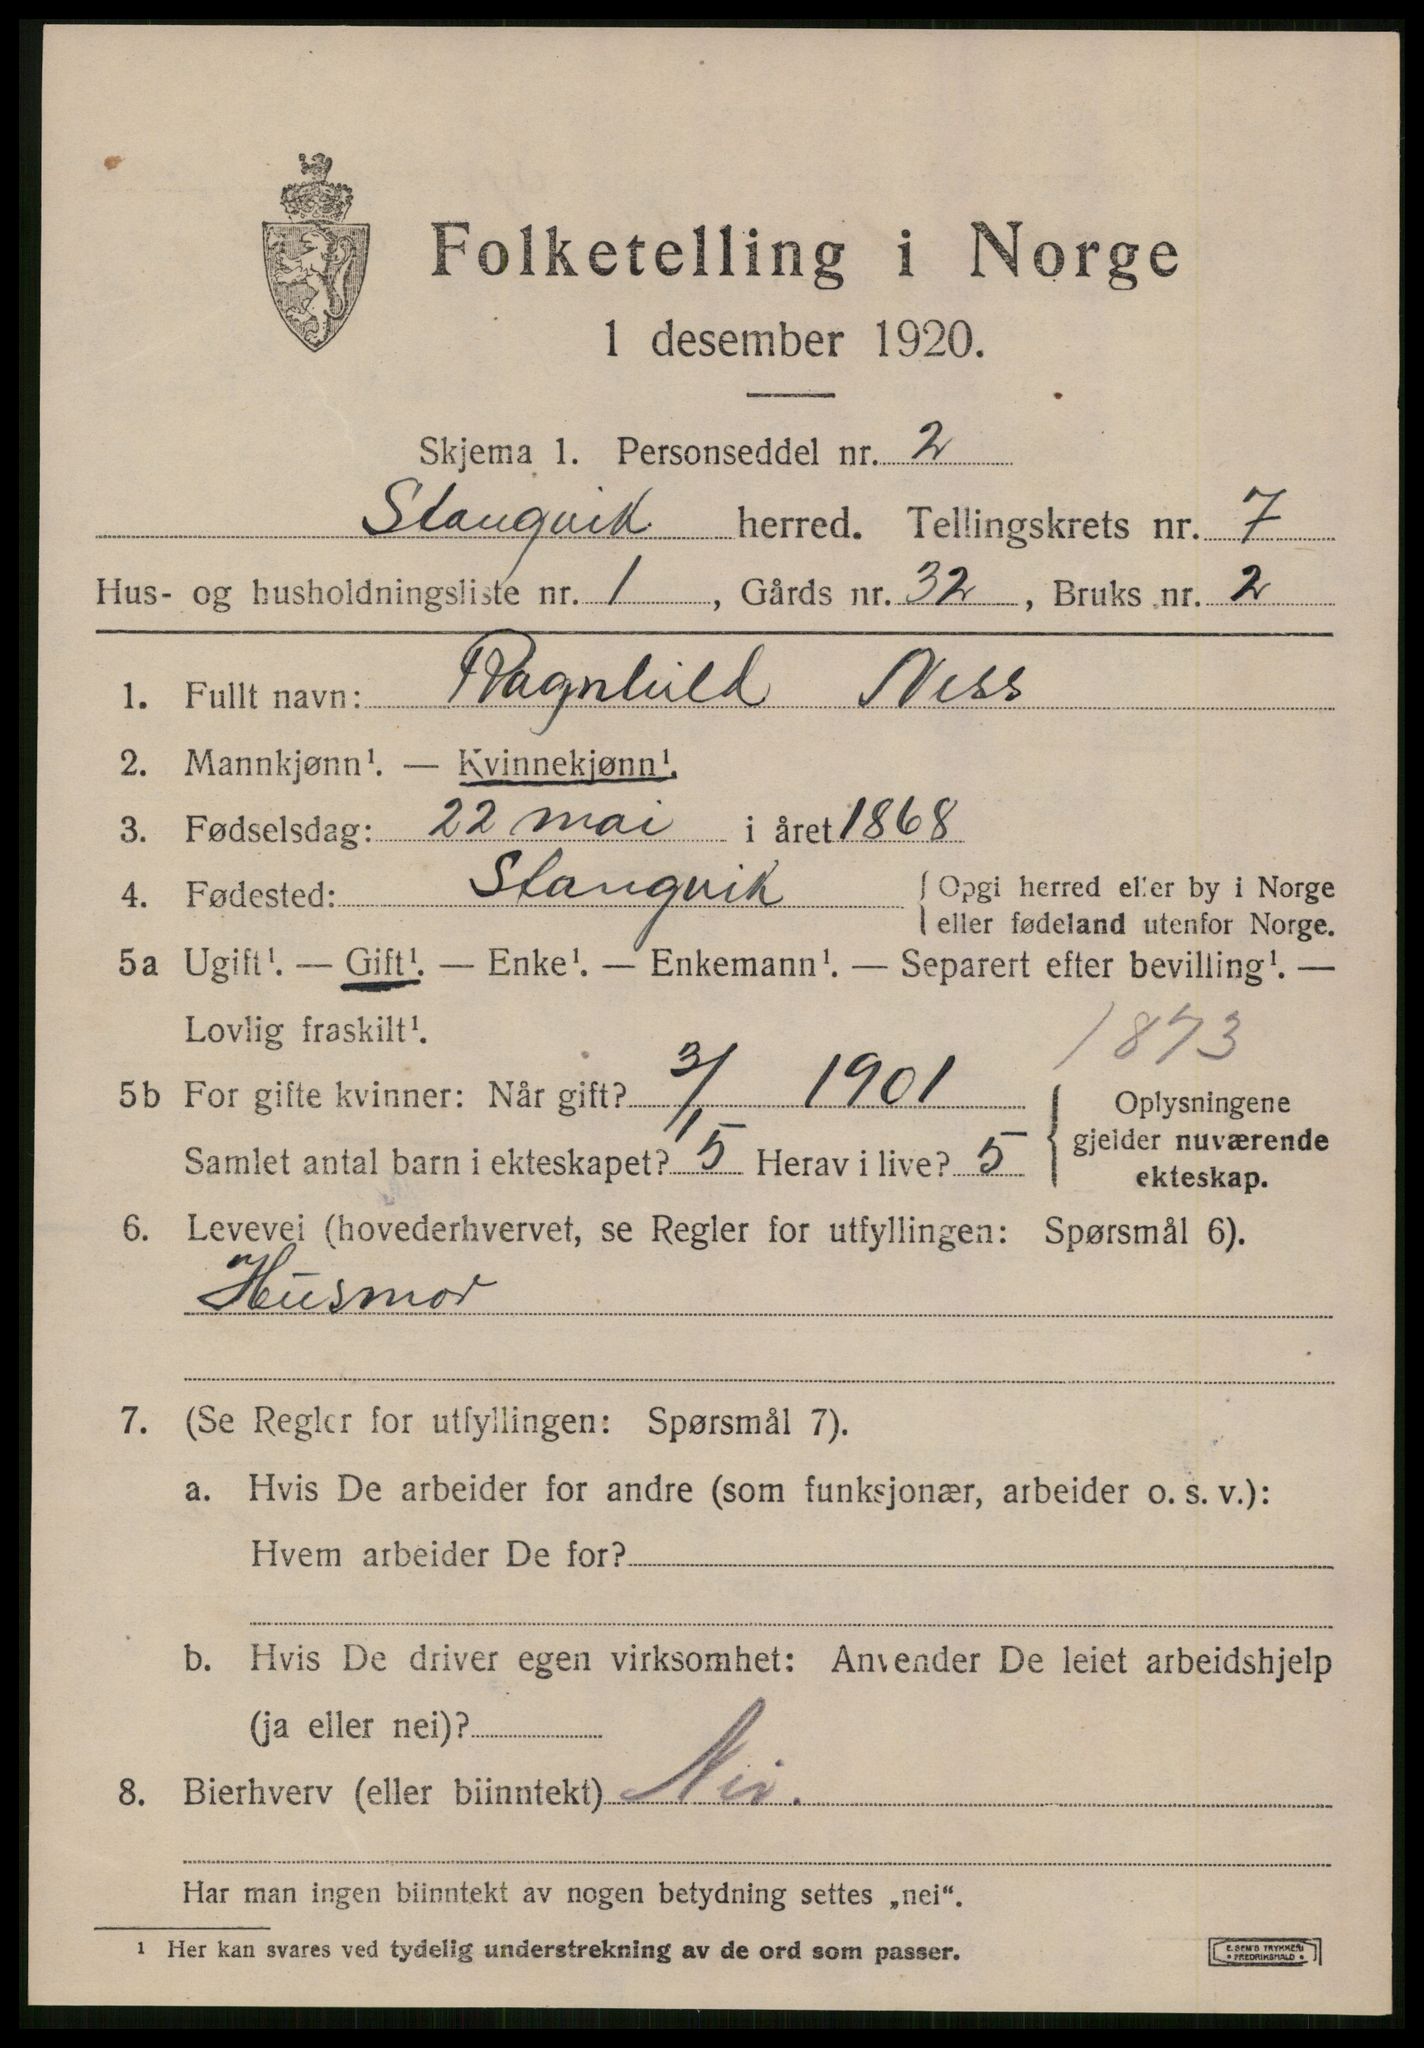 Folketelling i Norge
1 desember 1920.
Skjema 1. Personseddel nr. 2
Stangvik herred. Tellingskrets nr. 7
Hus- og husholdningsliste nr. 1, Gårds nr. 32, Bruks nr. 2
1. Fullt navn: Ragnhild Ness
2. Mannkjønn¹. — Kvinnekjønn¹.
3. Fødselsdag: 22 mai i året 1868
4. Fødested: Stangvik { Opgi herred eller by i Norge
eller fødeland utenfor Norge.
5a Ugift¹. — Gift¹. — Enke¹. — Enkemann¹. — Separert efter bevilling¹. —
Lovlig fraskilt¹.
1873
5b For gifte kvinner: Når gift? 3/1 1901
Samlet antal barn i ekteskapet? 5 Herav i live? 5
{ Oplysningene
gjelder nuværende
ekteskap.
6. Levevei (hovederhvervet, se Regler for utfyllingen: Spørsmål 6).
Husmor
7. (Se Regler for utfyllingen: Spørsmål 7).
a. Hvis De arbeider for andre (som funksjonær, arbeider o. s. v.):
Hvem arbeider De for?
b. Hvis De driver egen virksomhet: Anvender De leiet arbeidshjelp
(ja eller nei)?
8. Bierhverv (eller biinntekt) Nei.
Har man ingen biinntekt av nogen betydning settes „nei“.
¹ Her kan svares ved tydelig understrekning av de ord som passer.
E. SEM'S TRYKKERI
• FREDRIKSHALD •